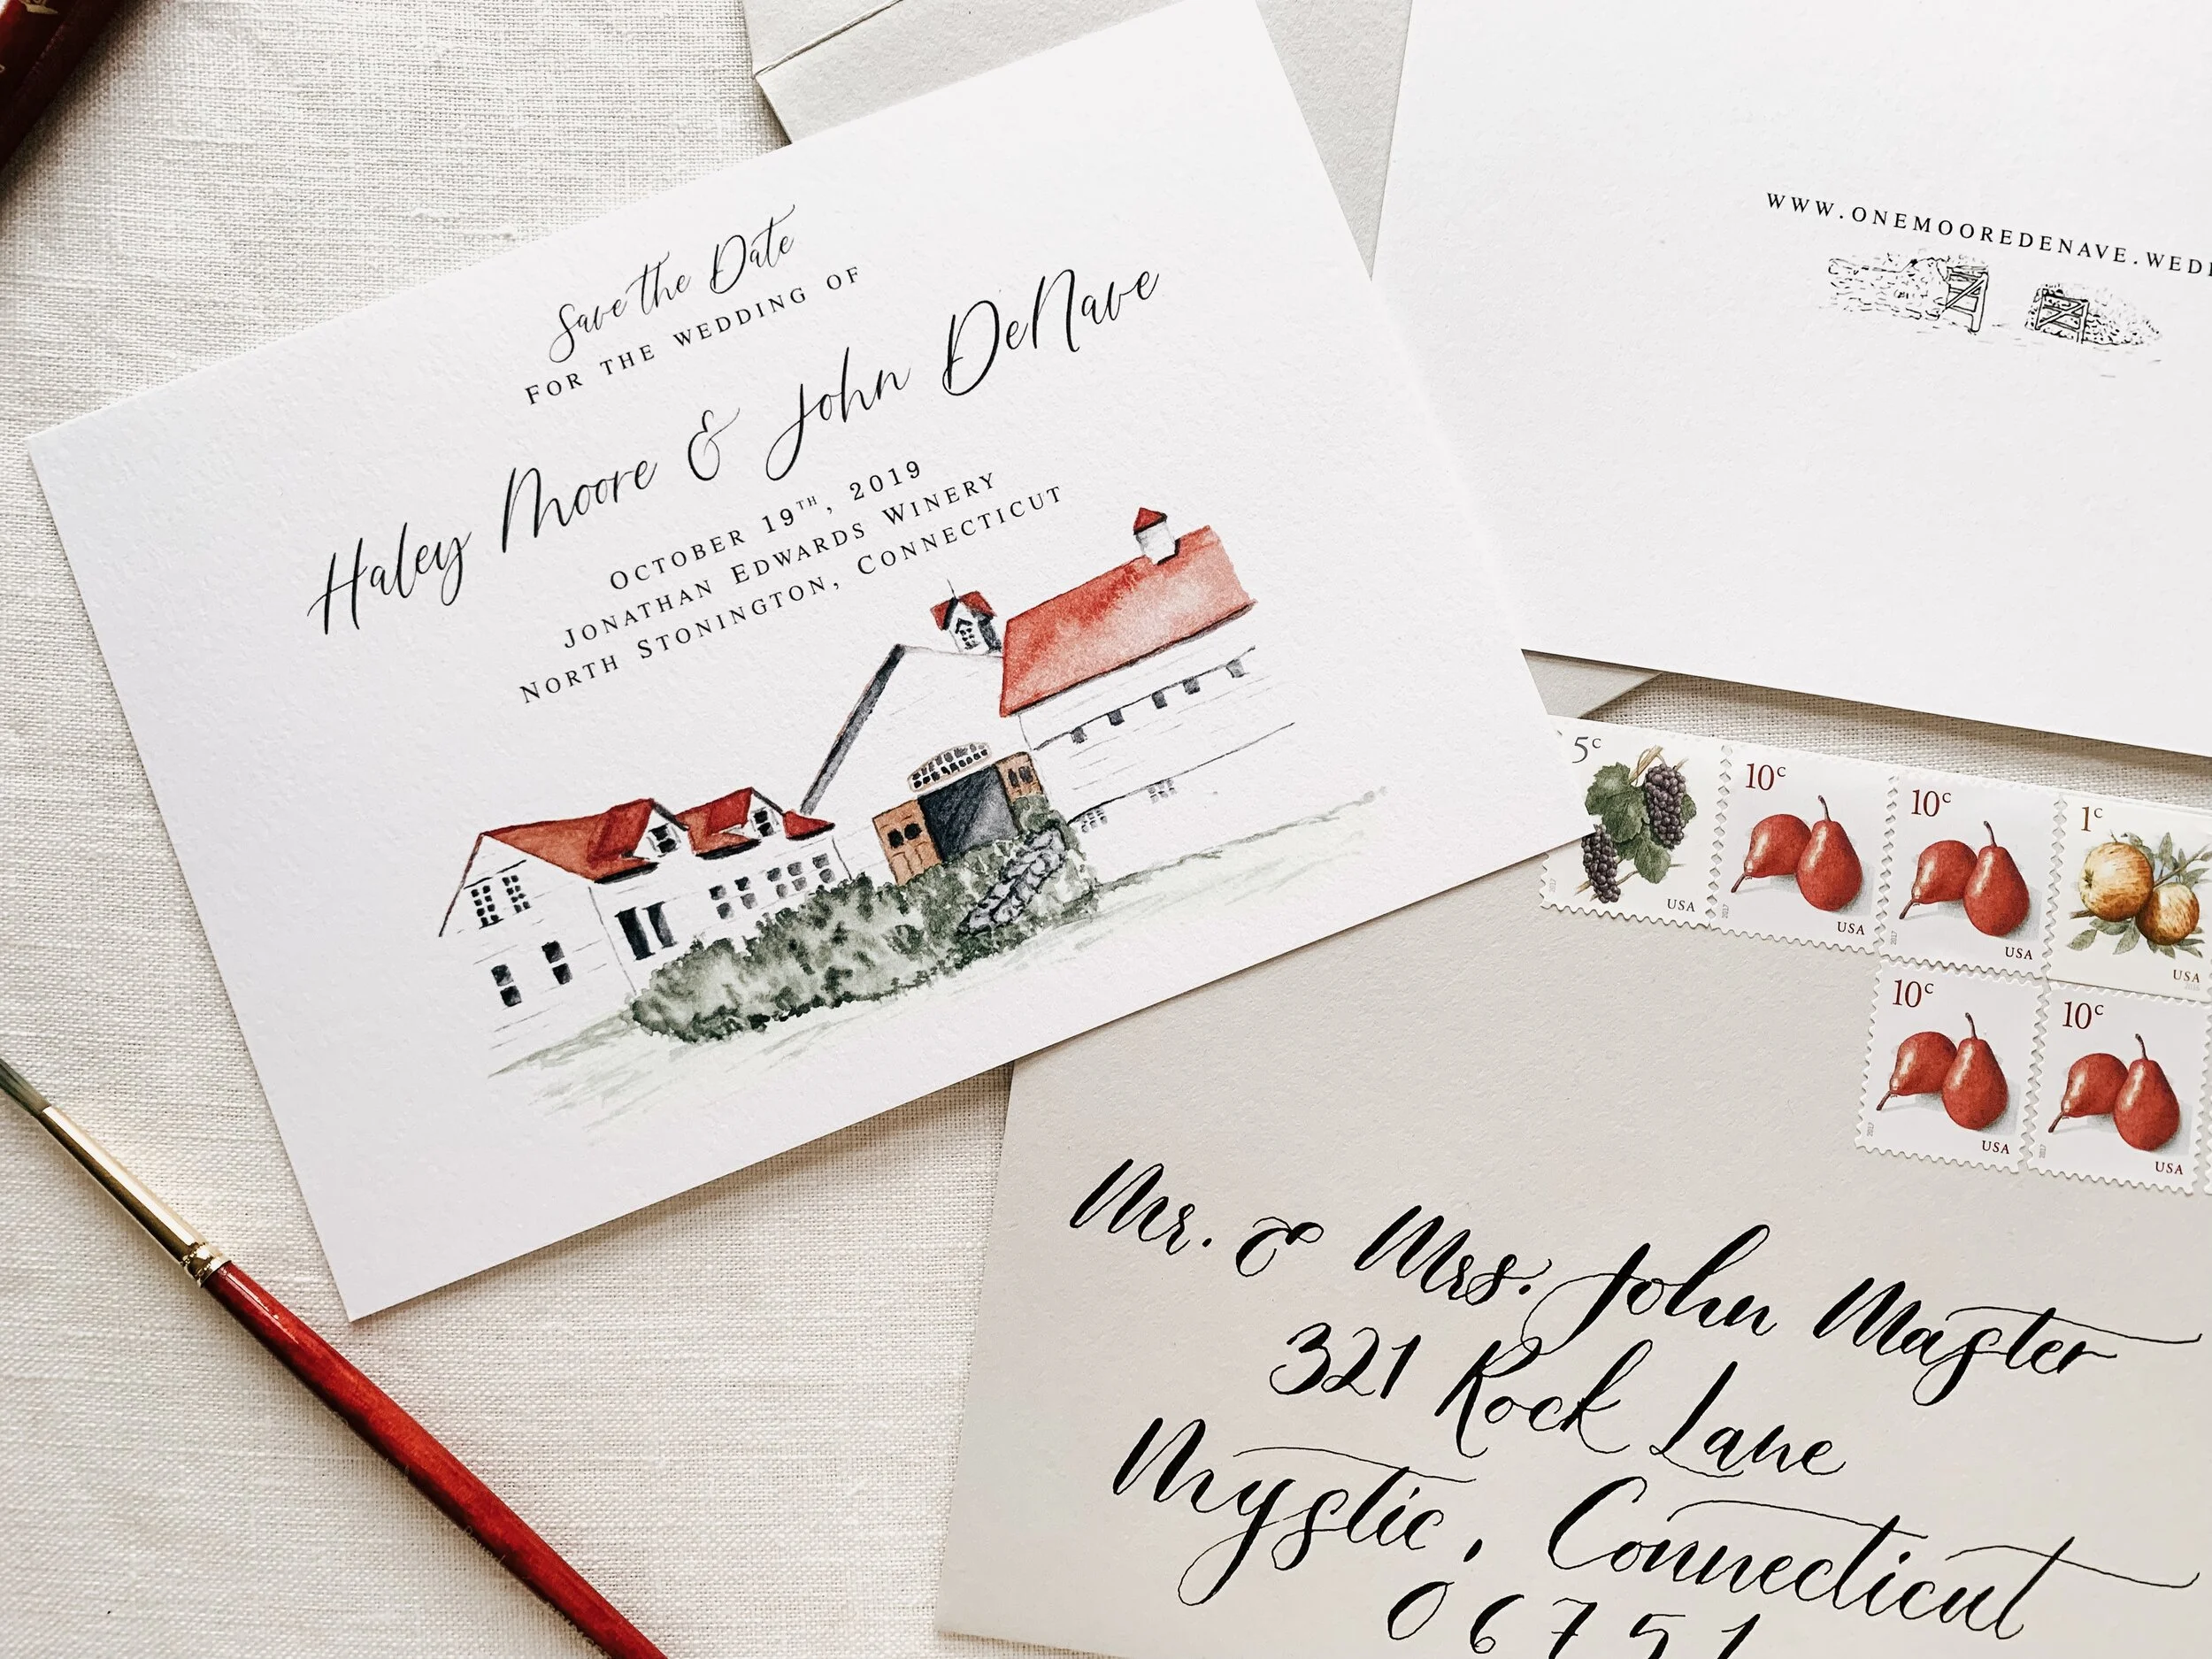 Save the Date
FOR THE WEDDING OF
Haley Moore & John DeNave
OCTOBER 19TH, 2019
JONATHAN EDWARDS WINERY
NORTH STONINGTON, CONNECTICUT
WWW.ONEMOOREDENAVE.WED
5c
USA
10c
USA
2017
10c
USA
2017
1c
USA
10c
USA
2017
10c
USA
2017
Mr. & Mrs. John Master
321 Rock Lane
Mystic, Connecticut
06751